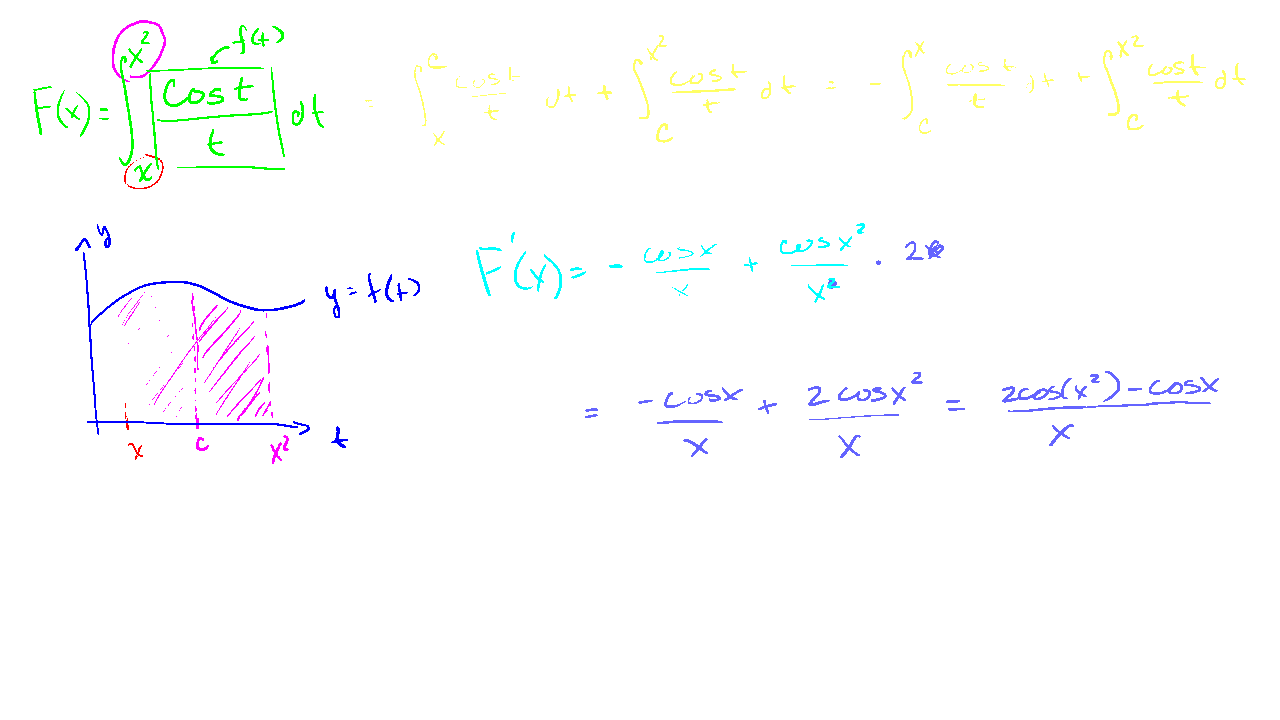 F(x) = ∫_x^{x²} cos t / t dt = ∫_x^c cos t / t dt + ∫_c^{x²} cos t / t dt = - ∫_c^x cos t / t dt + ∫_c^{x²} cos t / t dt
f(t)
y
y = f(t)
x c x² t
F'(x) = - cos x / x + cos x² / x² · 2x
= -cos x / x + 2 cos x² / x = 2cos(x²) - cos x / x